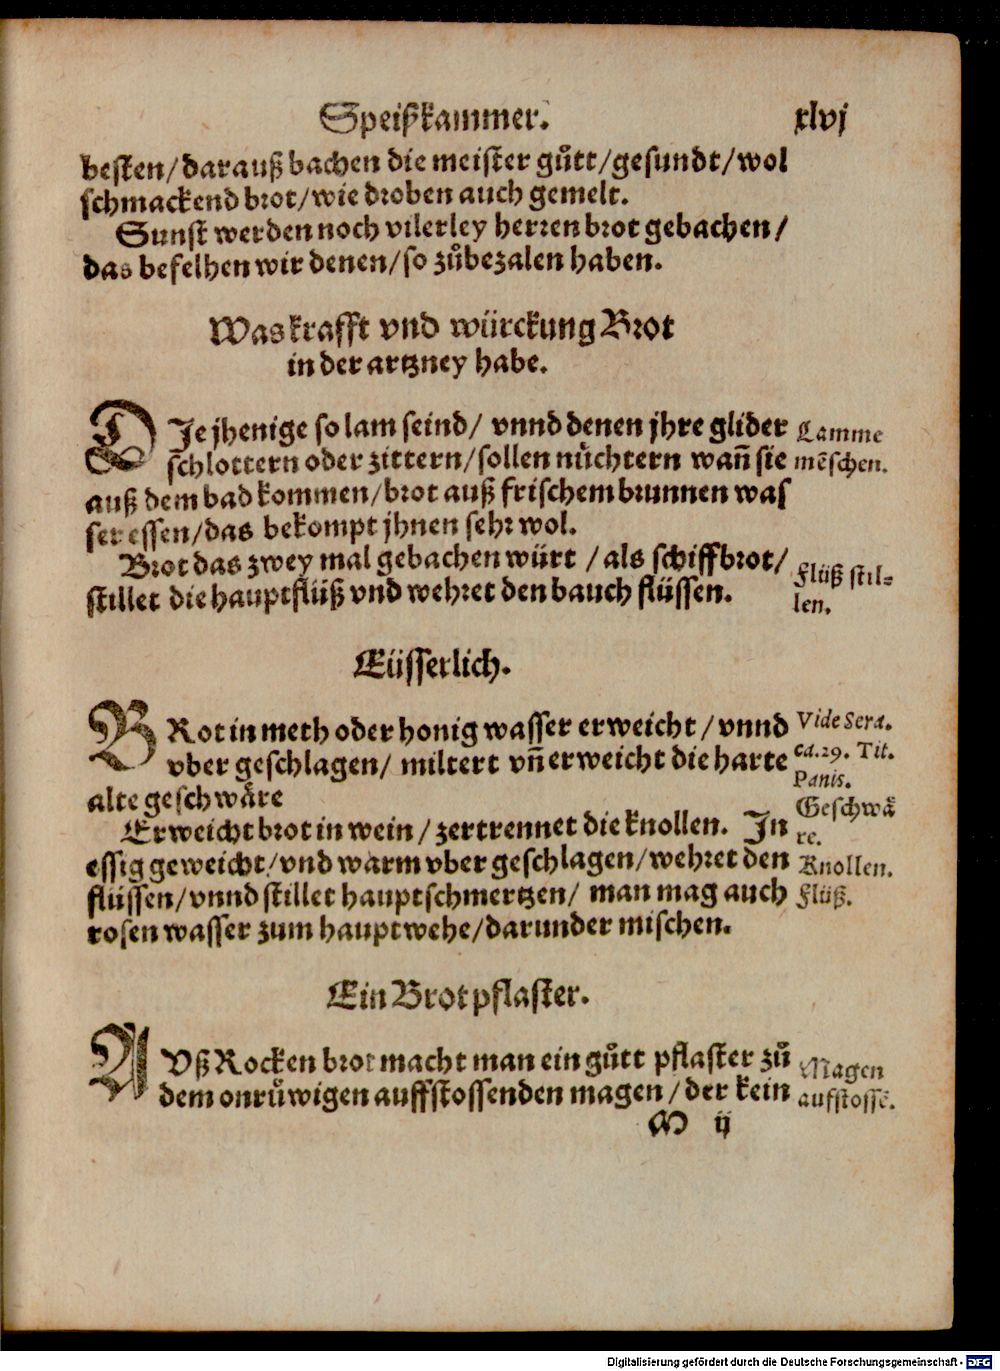 Speißkammer. xlvj
besten/darauß bachen die meister gůtt/gesundt/wol
schmackend brot/wie droben auch gemelt.
Sunst werden noch vilerley herren brot gebachen/
das befelhen wir denen/so zůbezalen haben.
Was krafft vnd würckung Brot
in der artzney habe.
DIe jhenige so lam seind/ vnnd denen jhre glider
schlottern oder zittern/sollen nüchtern wañ sie
auß dem bad kommen/brot auß frischem brunnen was
ser essen/das bekompt jhnen sehr wol.
Lamme
mẽschen.
Brot das zwey mal gebachen würt /als schiffbrot/
stillet die hauptflüß vnd wehret den bauch flüssen.
Flüß stil-
len.
Eüsserlich.
BRot in meth oder honig wasser erweicht /vnnd
vber geschlagen/ miltert vñ erweicht die harte
alte geschwäre
Vide Sera.
ca.29. Tit.
Panis.
Geschwä
re.
Erweicht brot in wein /zertrennet die knollen. In
essig geweicht/vnd warm vber geschlagen/wehret den
flüssen/vnnd stillet hauptschmertzen/ man mag auch
rosen wasser zum hauptwehe/darunder mischen.
Knollen.
Flüß.
Ein Brotpflaster.
AVß Rocken brot macht man ein gůtt pflaster zů
dem onrůwigen auffstossenden magen/der kein
Magen
aufstossẽ.
M ij
Digitalisierung gefördert durch die Deutsche Forschungsgemeinschaft - DFG